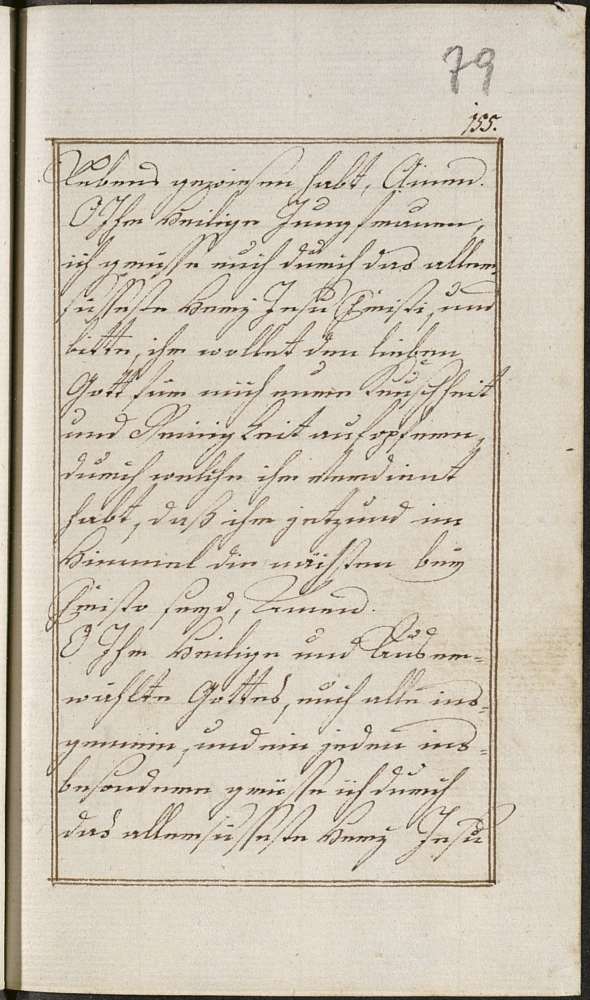 79
155.
Lebens gewiesen habt, Amen.
O Ihr Heilige Jungfrauen,
ich grüsse euch durch das aller,
süsseste Herz Jesu Christi, und
bitte, ihr wollet den lieben
Gott für mich eure Keuschheit
und Reinigkeit aufopferen,
durch welche ihr verdient
habt, daß ihr jetzund im
Himmel die nächsten bey
Christo seyd, Amen.
O Ihr Heilige und Auser=
wählte Gottes, euch alle ins=
gemein, und ein jeden ins=
besondere grüsse ich durch
das allersüsseste Herz Jesu